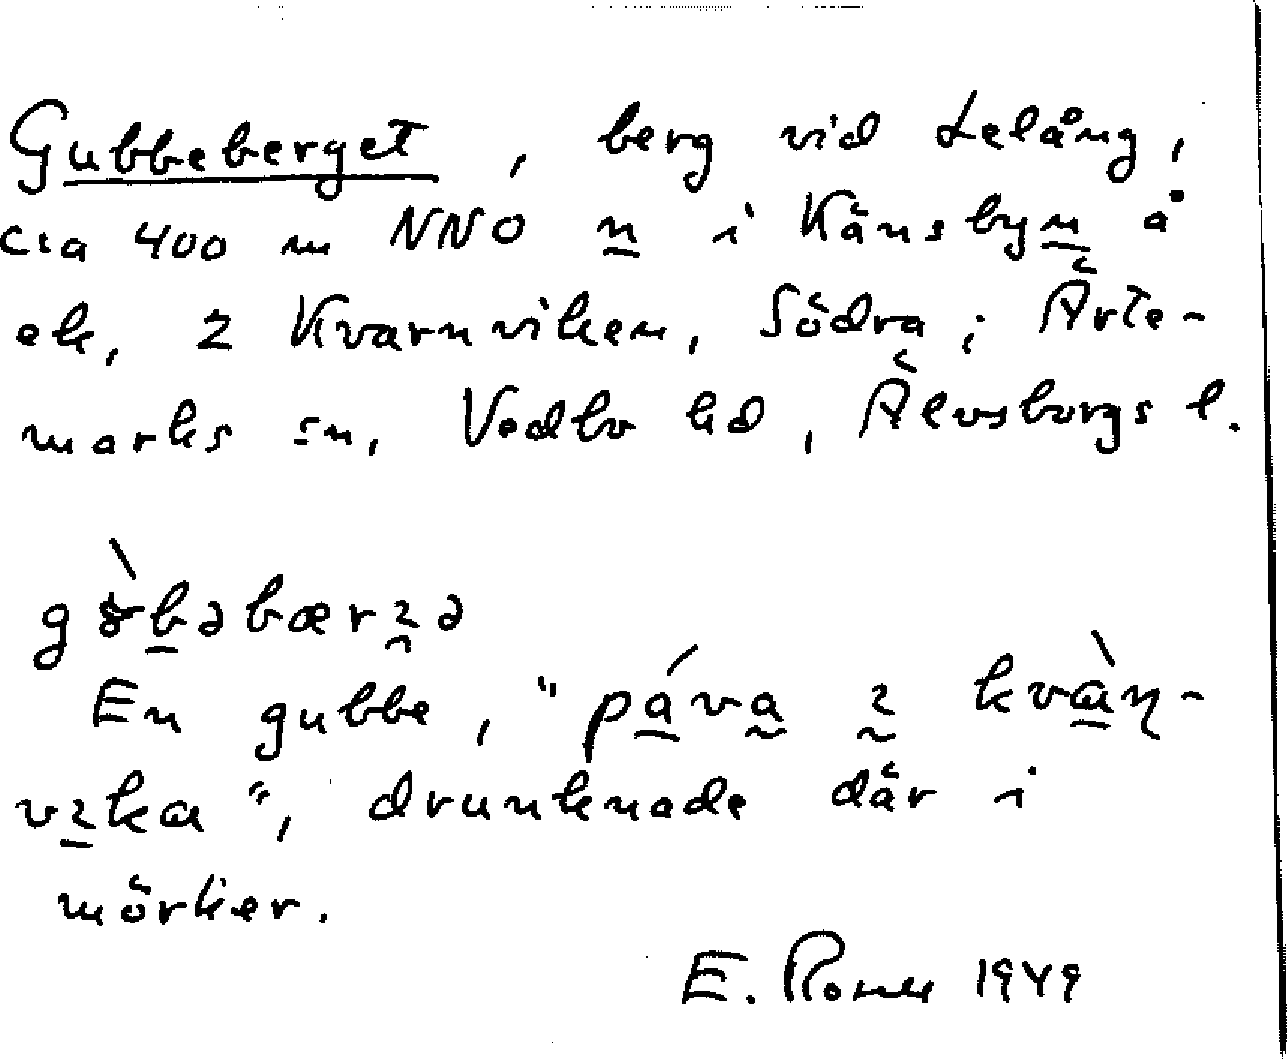 Gubbeberget, berg vid Lelång,
cia 400 m NNO n i Känsbyn å
ek, 2 Kvarnviken, Södra; Ärte-
marks sn, Vedbo hd, Älvsborgs l.
En gubbe, "páva
", drunknade där i
mörker.
E. 1949